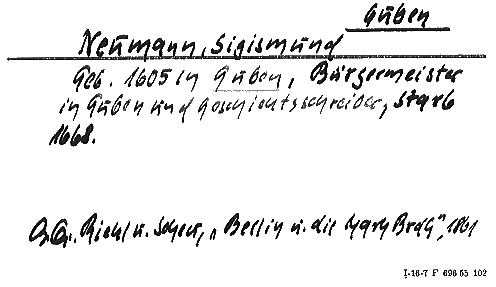 Guben
Neumann, Sigismund
Geb. 1605 in Guben, Bürgermeister
in Guben und Geschichtsschreiber, starb
1668.
Riehl u. Scheu, „Berlin u. die Mark Brdg", 1861
I-16-7 F 696 55 102